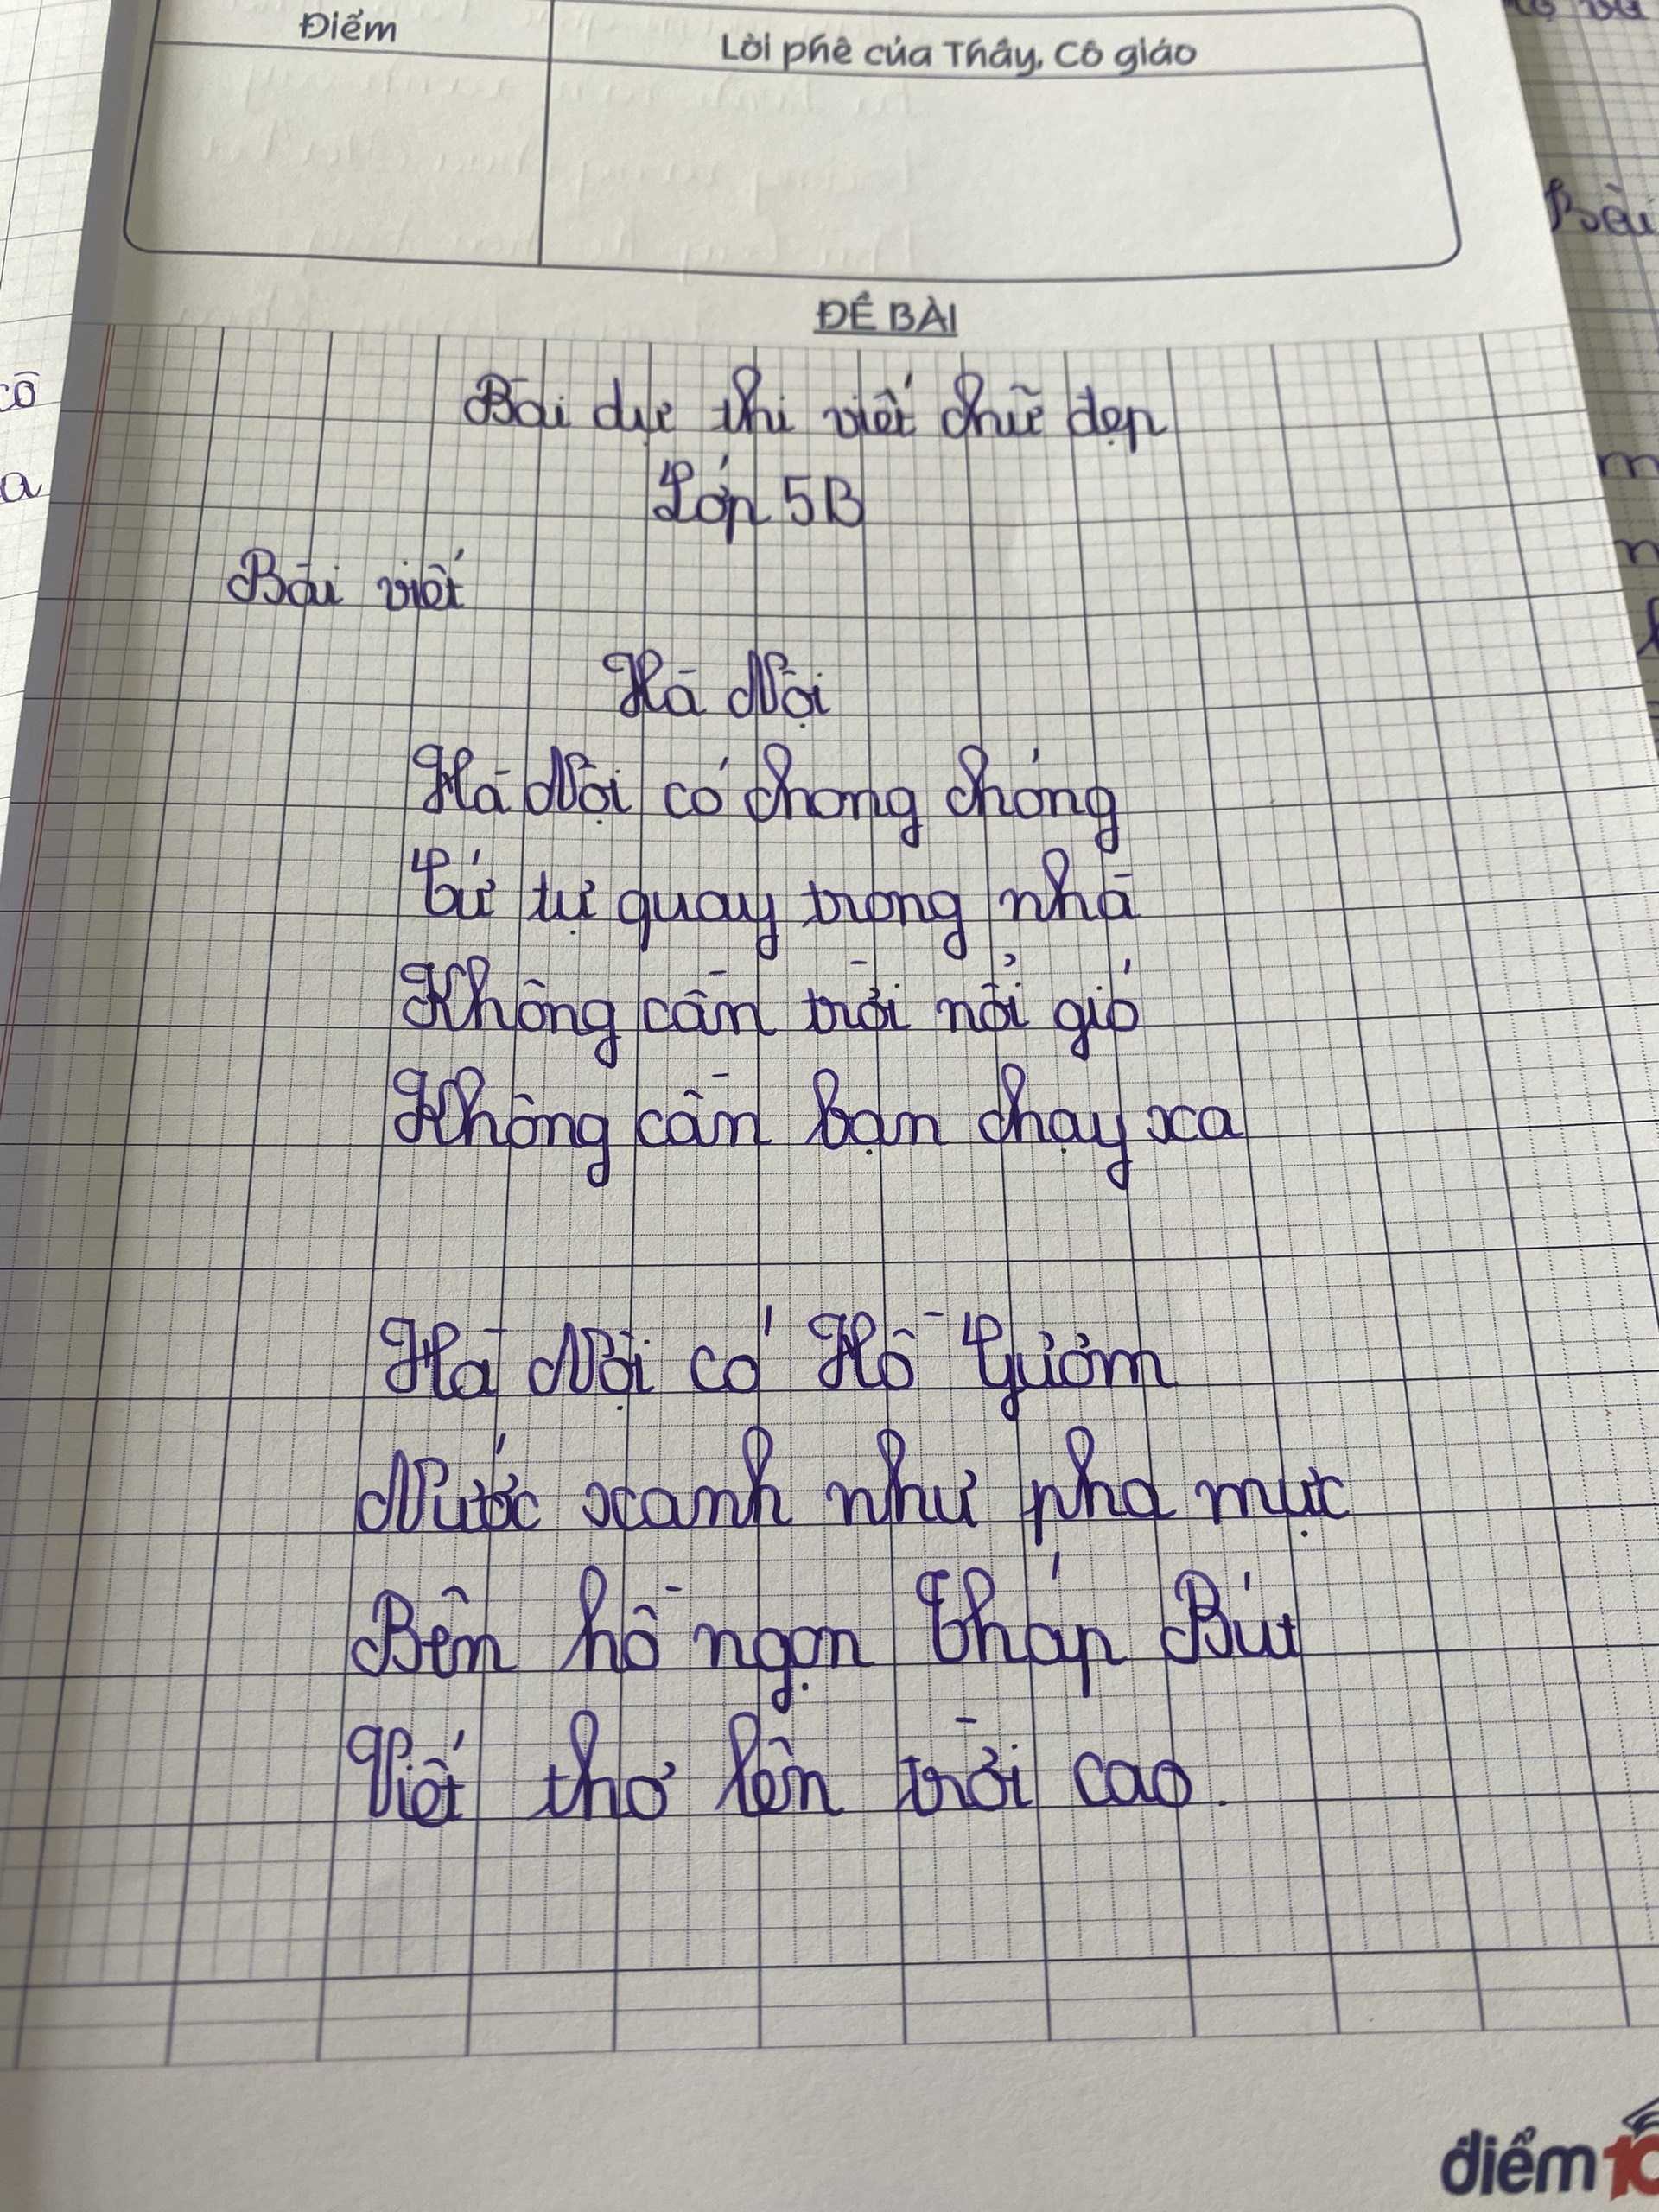 Điểm
Lời phê của Thầy, Cô giáo
ĐỀ BÀI
Bài dự thi viết chữ đẹp
Lớp 5B
Bài viết
Hà Nội
Hà Nội có chong chóng
Cứ tự quay trong nhà
Không cần trời nổi gió
Không cần bạn chạy xa
Hà Nội có Hồ Gươm
Nước xanh như pha mực
Bên hồ ngọn Tháp Bút
Viết thơ lên trời cao.
điểm 10